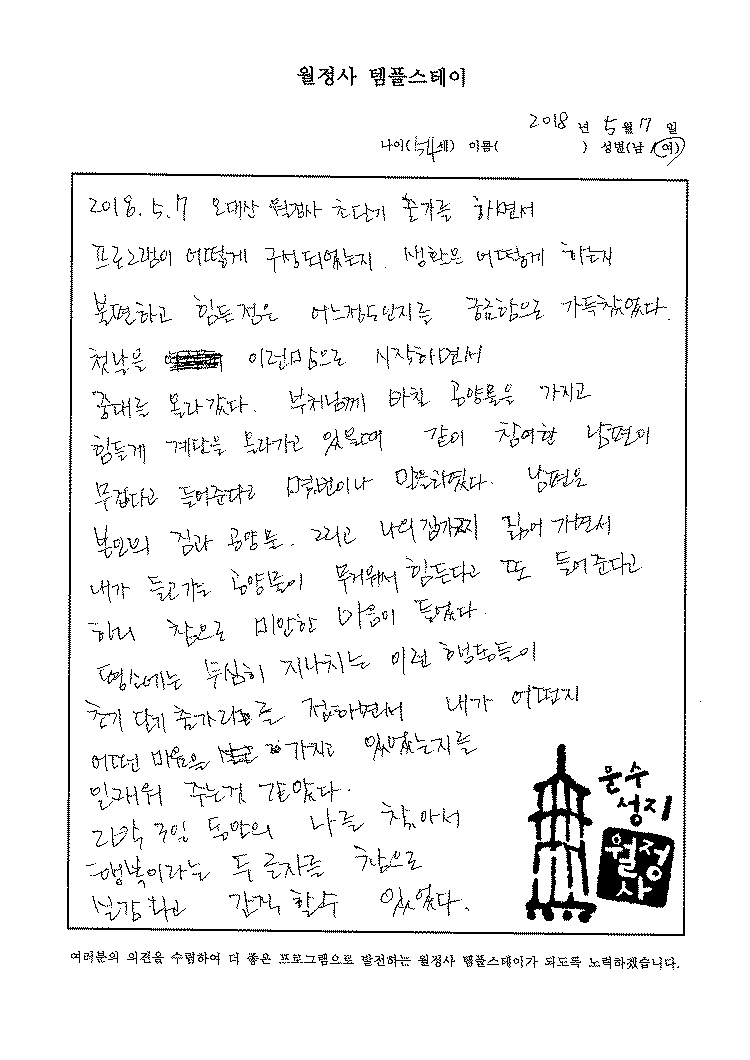 월정사 템플스테이
2018 년 5 월 7 일
나이(54세) 이름( ) 성별(남/여)
2018. 5. 7 오대산 월정사 초단기 출가를 하면서
프로그램이 어떻게 구성되었는지. 생활은 어떻게 하는지
불편하고 힘든점은 어느정도인지를 궁금함으로 가득찼었다.
첫날을 이런맘으로 시작하면서
중대를 올라갔다. 부처님께 바칠 공양물을 가지고
힘들게 계단을 올라가고 있을때 같이 참여한 남편이
무겁다고 들어준다고 몇번이나 말을하였다. 남편은
본인의 짐과 공양물. 그리고 나의짐까지 짊어 가면서
내가 들고가는 공양물이 무거워서 힘든다고 또 들어준다고
하니 참으로 미안한 마음이 들었다.
평소에는 무심히 지나치는 이런 행동들이
초기 단기 출가라는 를 접하면서 내가 어떤지
어떤 마음을 가지고 있었는지를
일깨워 주는것 같았다.
2박 3일 동안의 나를 찾아서
행복이라는 두 글자를 참으로
실감하고 간직 할수 있었다.
문수
성지
월정
사
여러분의 의견을 수렴하여 더 좋은 프로그램으로 발전하는 월정사 템플스테이가 되도록 노력하겠습니다.